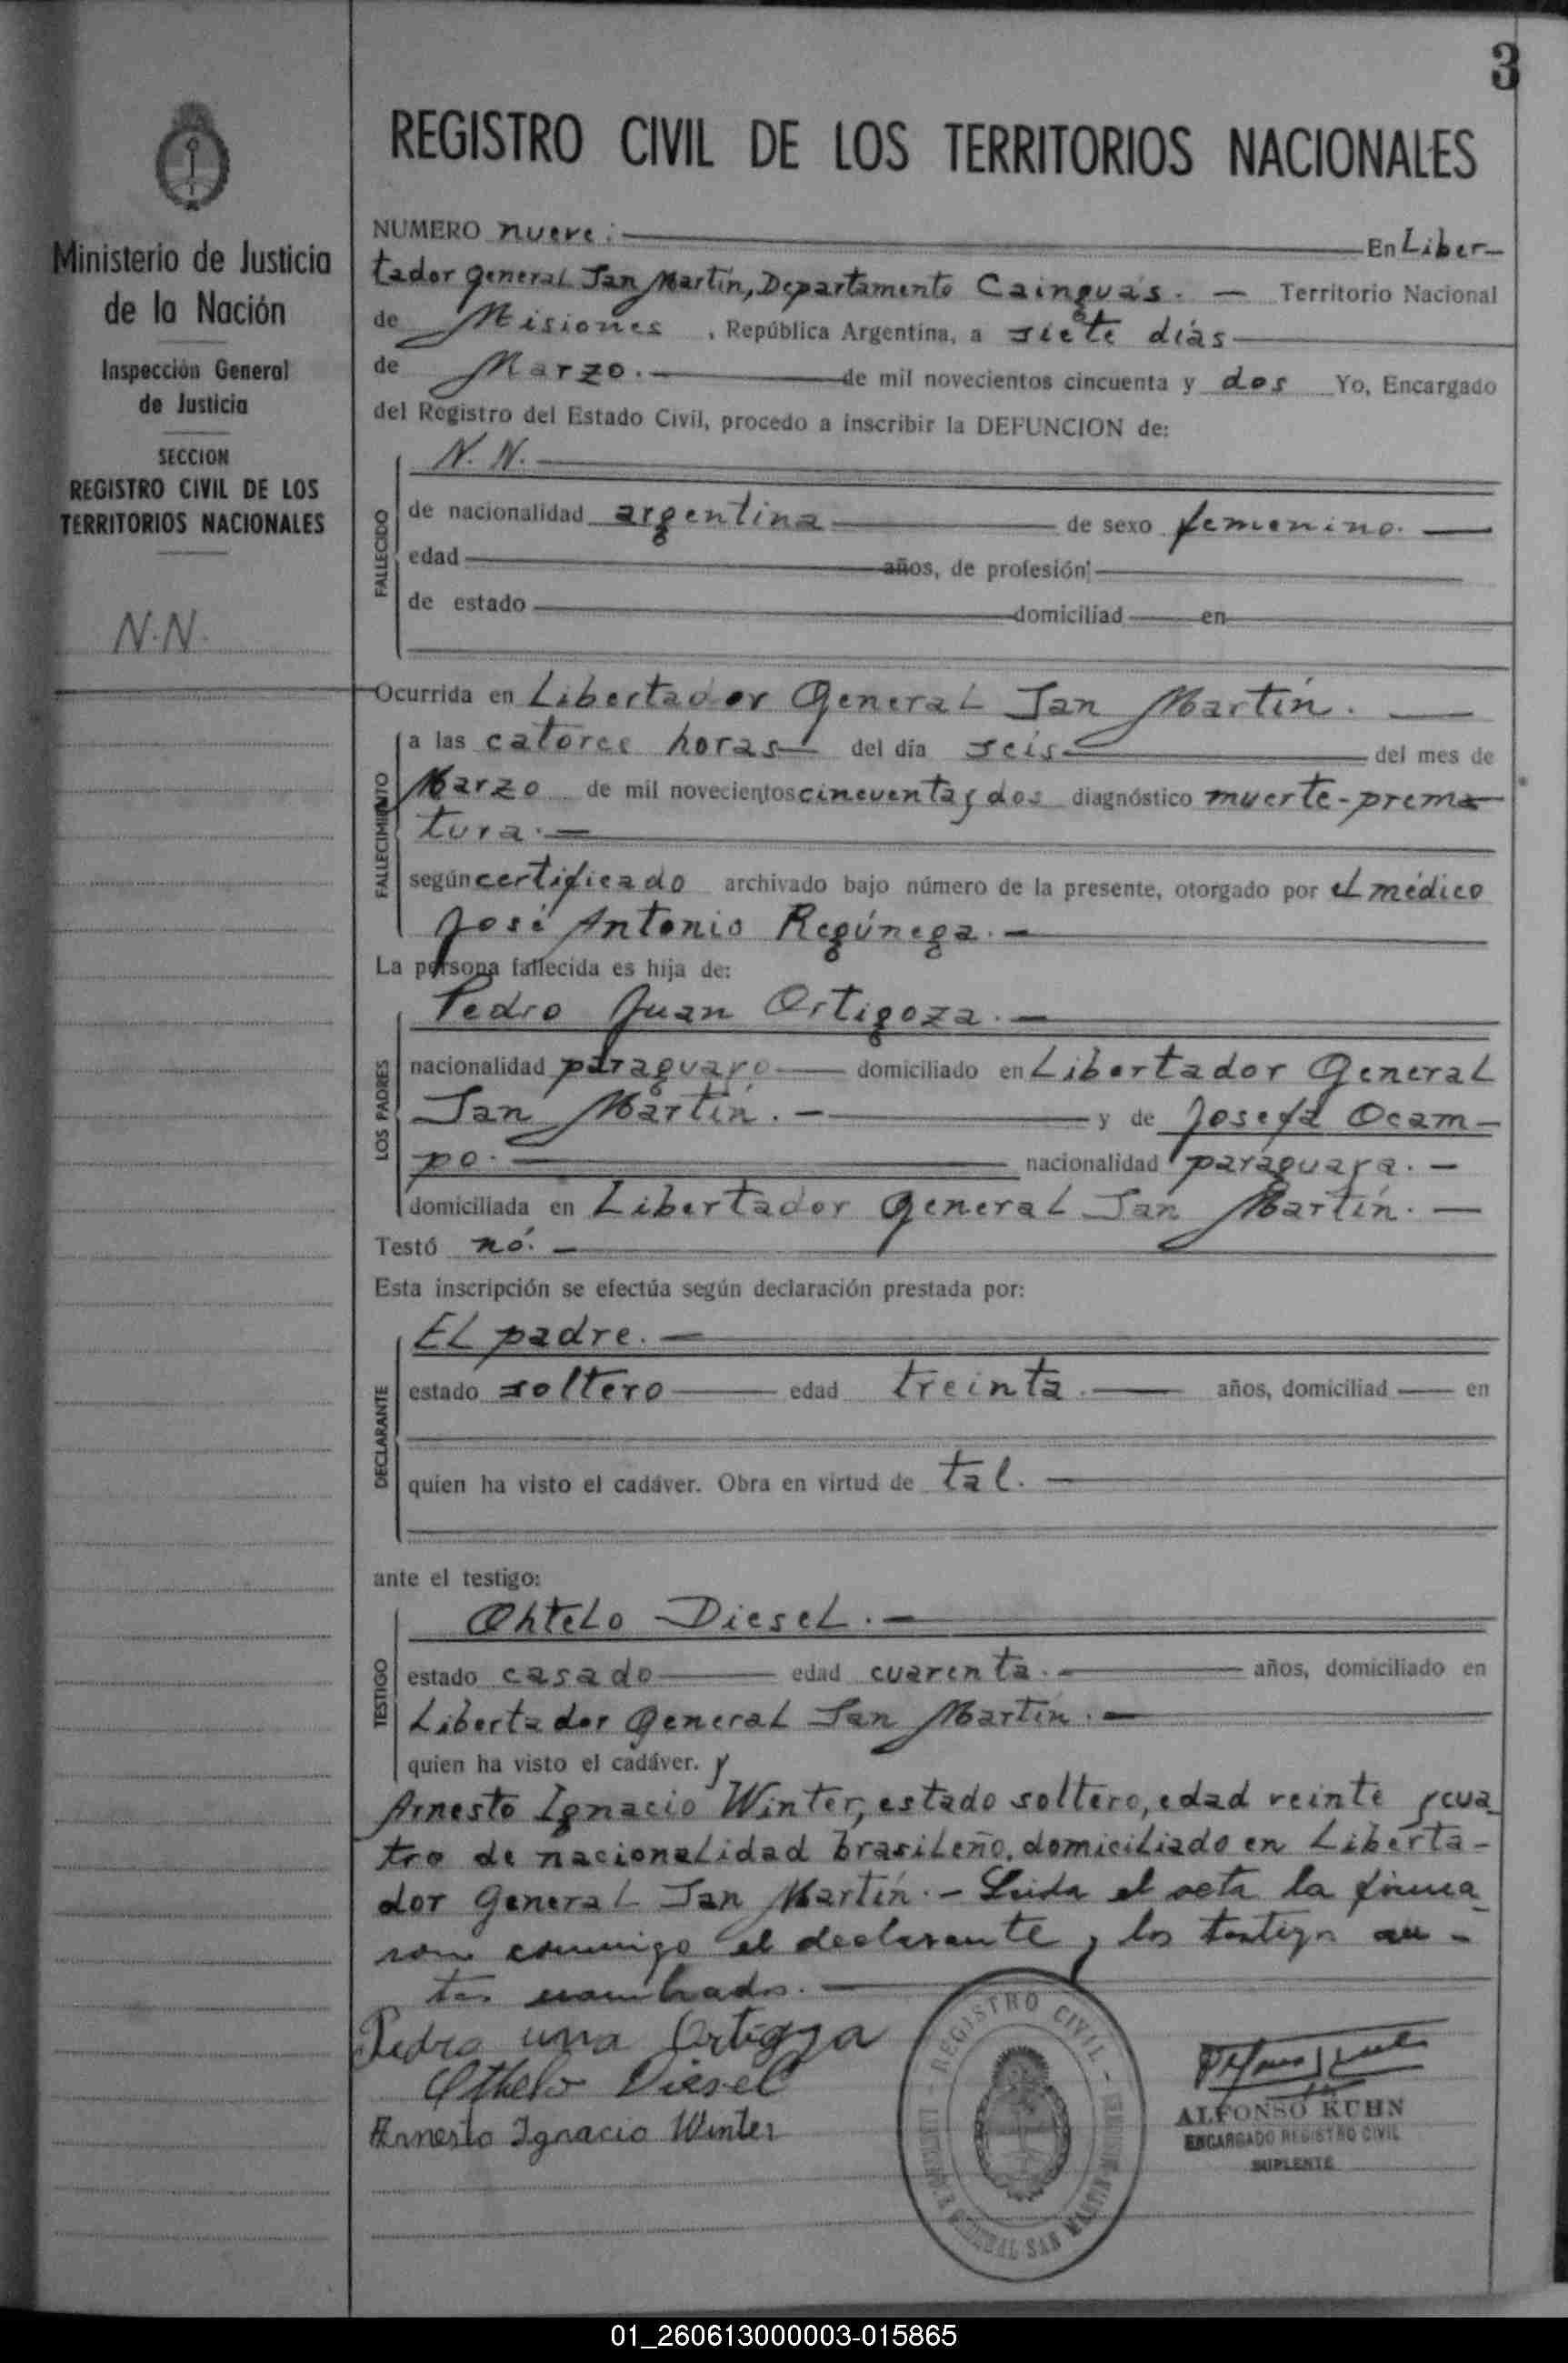 3
REGISTRO CIVIL DE LOS TERRITORIOS NACIONALES
Ministerio de Justicia
de la Nación
Inspección General
de Justicia
SECCION
REGISTRO CIVIL DE LOS
TERRITORIOS NACIONALES
N.N.
NUMERO nueve: En Liber-
tador General San Martín, Departamento Cainguás. — Territorio Nacional
de Misiones, República Argentina, a siete días
de Marzo. de mil novecientos cincuenta y dos Yo, Encargado
del Registro del Estado Civil, procedo a inscribir la DEFUNCION de:
FALLECIDO
N. N.
de nacionalidad argentina de sexo femenino.
edad años, de profesión
de estado domiciliad en
Ocurrida en Libertador General San Martín.
FALLECIMIENTO
a las catorce horas del día seis del mes de
Marzo de mil novecientos cincuenta y dos diagnóstico muerte-prema
tura.
según certificado archivado bajo número de la presente, otorgado por el médico
José Antonio Regúnega.
La persona fallecida es hija de:
LOS PADRES
Pedro Juan Ortigoza.
nacionalidad paraguayo domiciliado en Libertador General
San Martín. y de Josefa Ocam-
po. nacionalidad paraguaya.
domiciliada en Libertador General San Martín.
Testó nó.
Esta inscripción se efectúa según declaración prestada por:
DECLARANTE
El padre.
estado soltero edad treinta. años, domiciliad en
quien ha visto el cadáver. Obra en virtud de tal.
ante el testigo:
TESTIGO
Ohtelo Diesel.
estado casado edad cuarenta. años, domiciliado en
Libertador General San Martín.
quien ha visto el cadáver. y
Arnesto Ignacio Winter, estado soltero, edad veinte y cua
tro de nacionalidad brasileño, domiciliado en Liberta-
dor General San Martín. - Leida el acta la firma
ron conmigo el declarante y los testigos an-
tes nombrados.
Pedro Ortigoza
Othelo Diesel
Ernesto Ignacio Winter
REGISTRO CIVIL
LIBERTADOR GENERAL SAN MARTIN
ALFONSO KUHN
ENCARGADO REGISTRO CIVIL
SUPLENTE
01_260613000003-015865